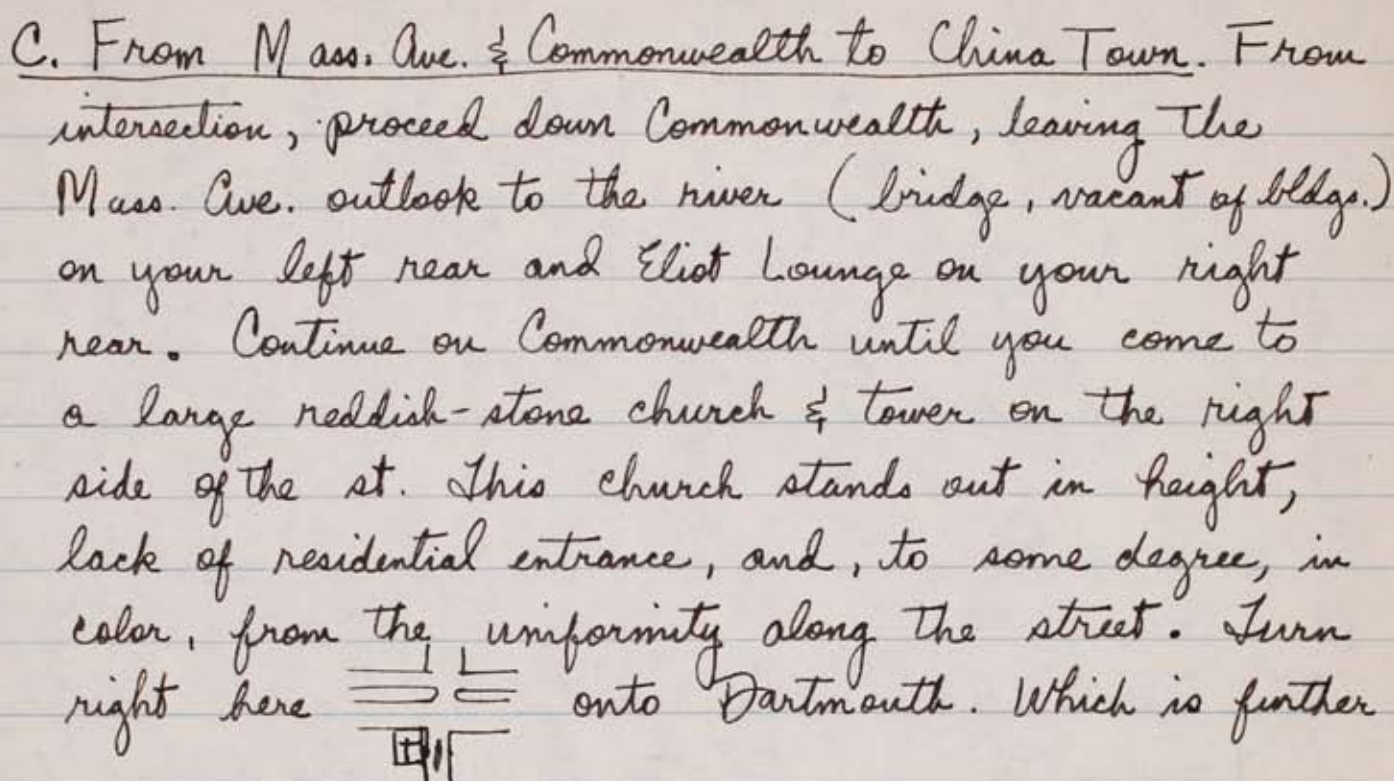 C. From Mass. Ave. & Commonwealth to China Town. From
intersection, proceed down Commonwealth, leaving the
Mass. Ave. outlook to the river (bridge, vacant of bldgs.)
on your left rear and Eliot Lounge on your right
rear. Continue on Commonwealth until you come to
a large reddish-stone church & tower on the right
side of the st. This church stands out in height,
lack of residential entrance, and, to some degree, in
color, from the uniformity along the street. Turn
right here onto Dartmouth. Which is further